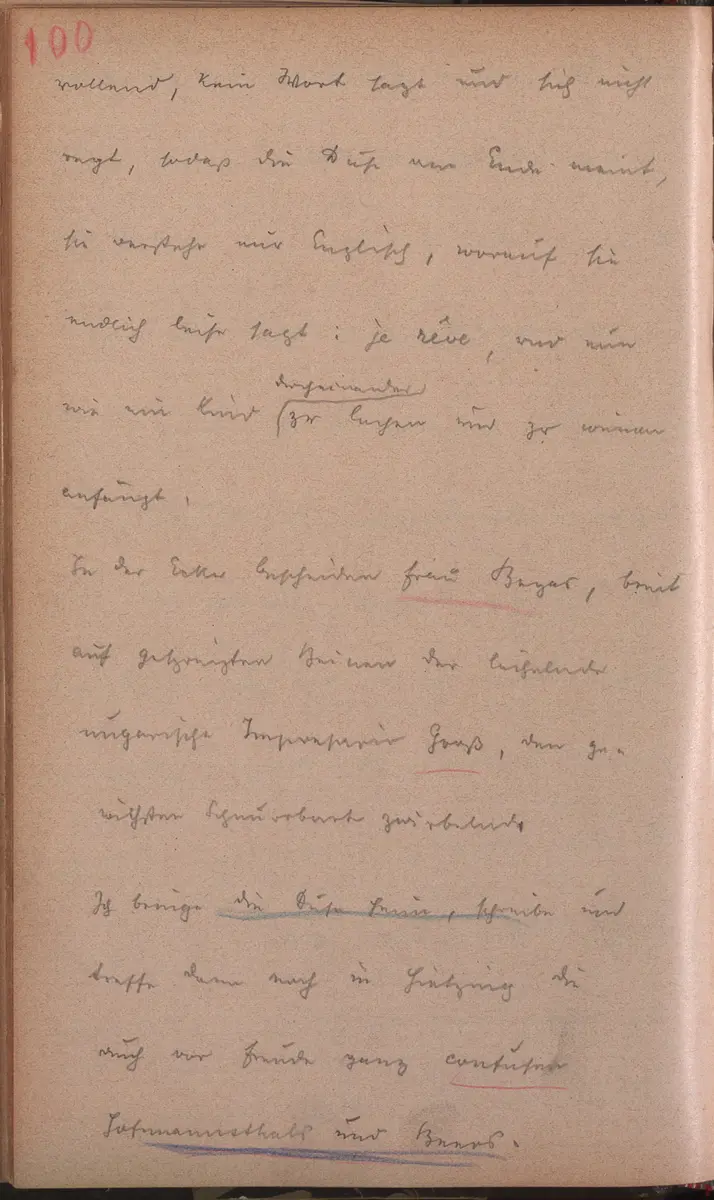 100
rollend, kein Wort sagt und sich nicht
regt, sodaß die Duse am Ende meint,
sie verstehe nur Englisch, worauf sie
endlich leise sagt: je rêve, und nun
durcheinander
wie ein Kind zu lachen und zu weinen
anfängt.
In der Ecke bescheiden Frau Begas, breit
auf gespreizten Beinen der lächelnde
ungarische Impresario Groß, den ge-
wichsten Schnurrbart zwirbelnd.
Ich bringe die Duse heim, schreibe und
treffe dann noch in Hietzing die
auch vor Freude ganz confusen
Hofmannsthals und Beers.